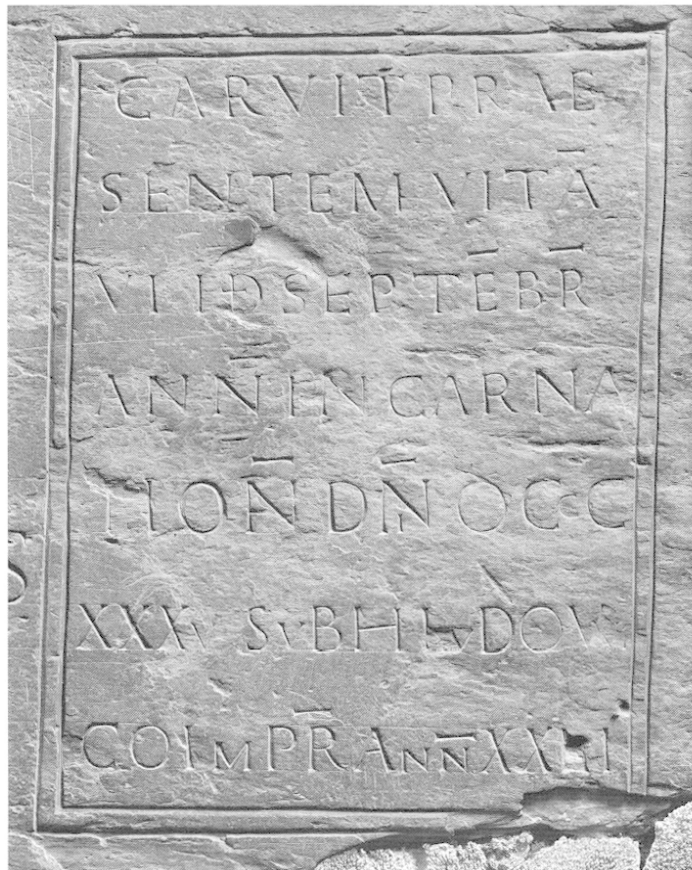 CARVIT PRAE
SENTEM VITĀ
VI ID SEPTĒBR̄
ANN̄ INCARNA
TION̄ DN̄ OCCC
XXXV SVB HLVDOVI
CO IMPR̄ ANN̄ XXIII